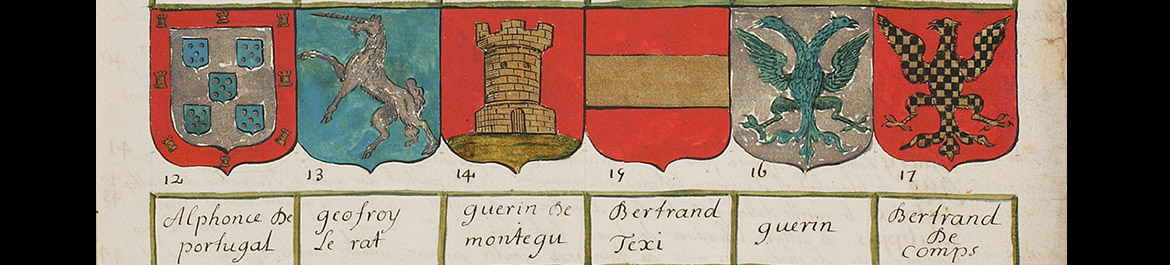 12 13 14 15 16 17
Alphonce De
portugal
geofroy
Le rat
guerin De
montegu
Bertrand
Texi
guerin
Bertrand
De
comps